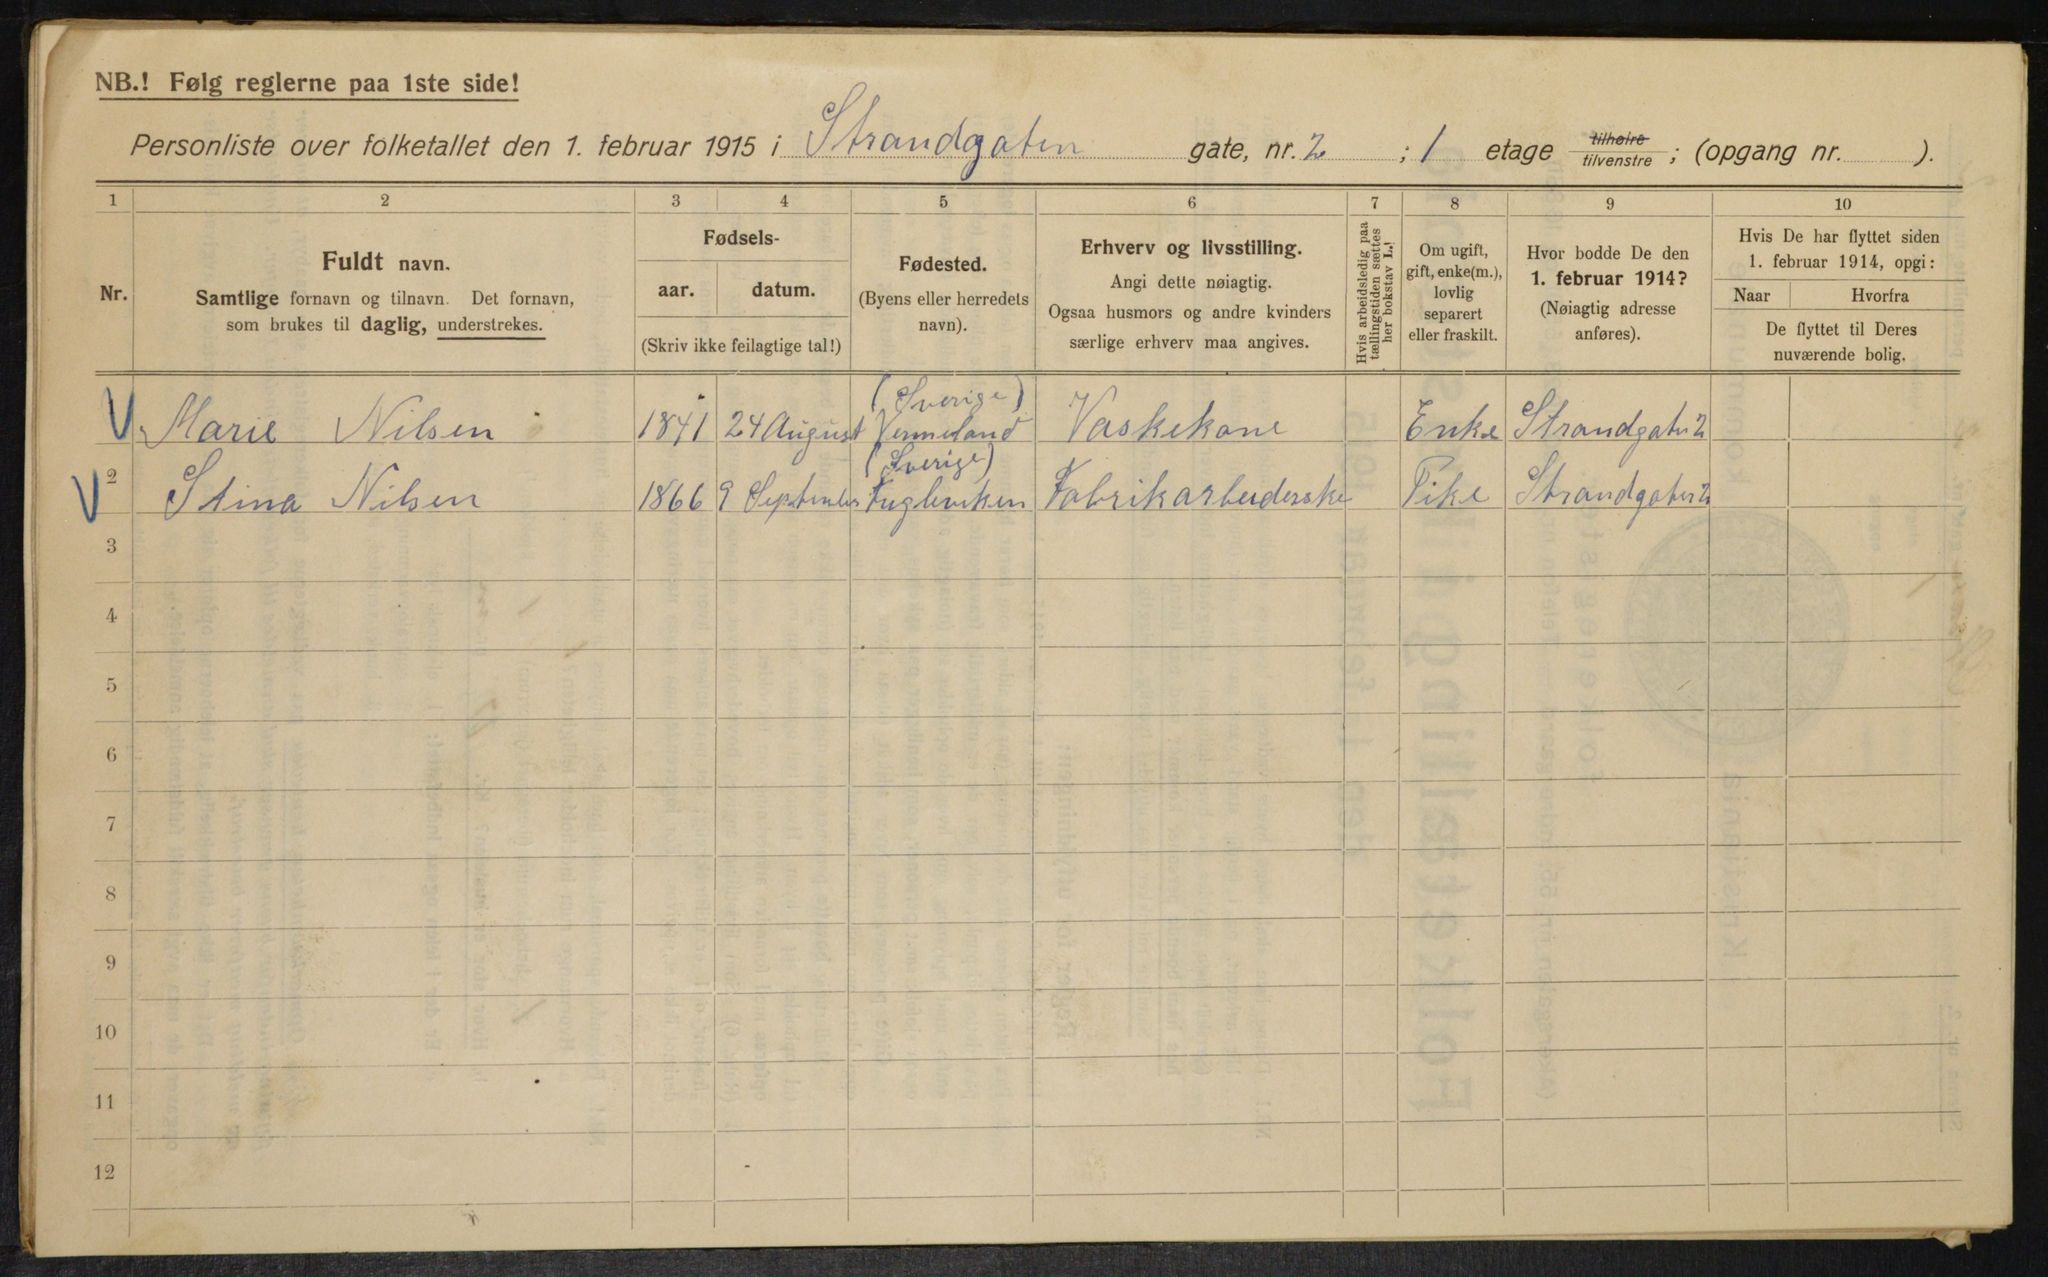 NB.! Følg reglerne paa 1ste side!
Personliste over folketallet den 1. februar 1915 i Strandgaten gate, nr. 2 ; 1 etage tilhøire tilvenstre ; (opgang nr. ).
1 2 3 4 5 6 7 8 9 10
Nr.
Fuldt navn.
Samtlige fornavn og tilnavn. Det fornavn,
som brukes til daglig, understrekes.
Fødsels-
aar. datum.
(Skriv ikke feilagtige tal!)
Fødested.
(Byens eller herredets
navn).
Erhverv og livsstilling.
Angi dette nøiagtig.
Ogsaa husmors og andre kvinders
særlige erhverv maa angives.
Hvis arbeidsledig paa
tællingstiden sættes
her bokstav L.!
Om ugift,
gift, enke(m.),
lovlig
separert
eller fraskilt.
Hvor bodde De den
1. februar 1914?
(Nøiagtig adresse
anføres).
Hvis De har flyttet siden
1. februar 1914, opgi:
Naar Hvorfra
De flyttet til Deres
nuværende bolig.
(Sverige)
V Marie Nilsen 1841 24 August Vermeland Vaskekone Enke Strandgaten 2
(Sverige)
V 2 Stina Nilsen 1866 9 September Fugleviken Fabrikarbeiderske Pike Strandgaten 2
3
4
5
6
7
8
9
10
11
12